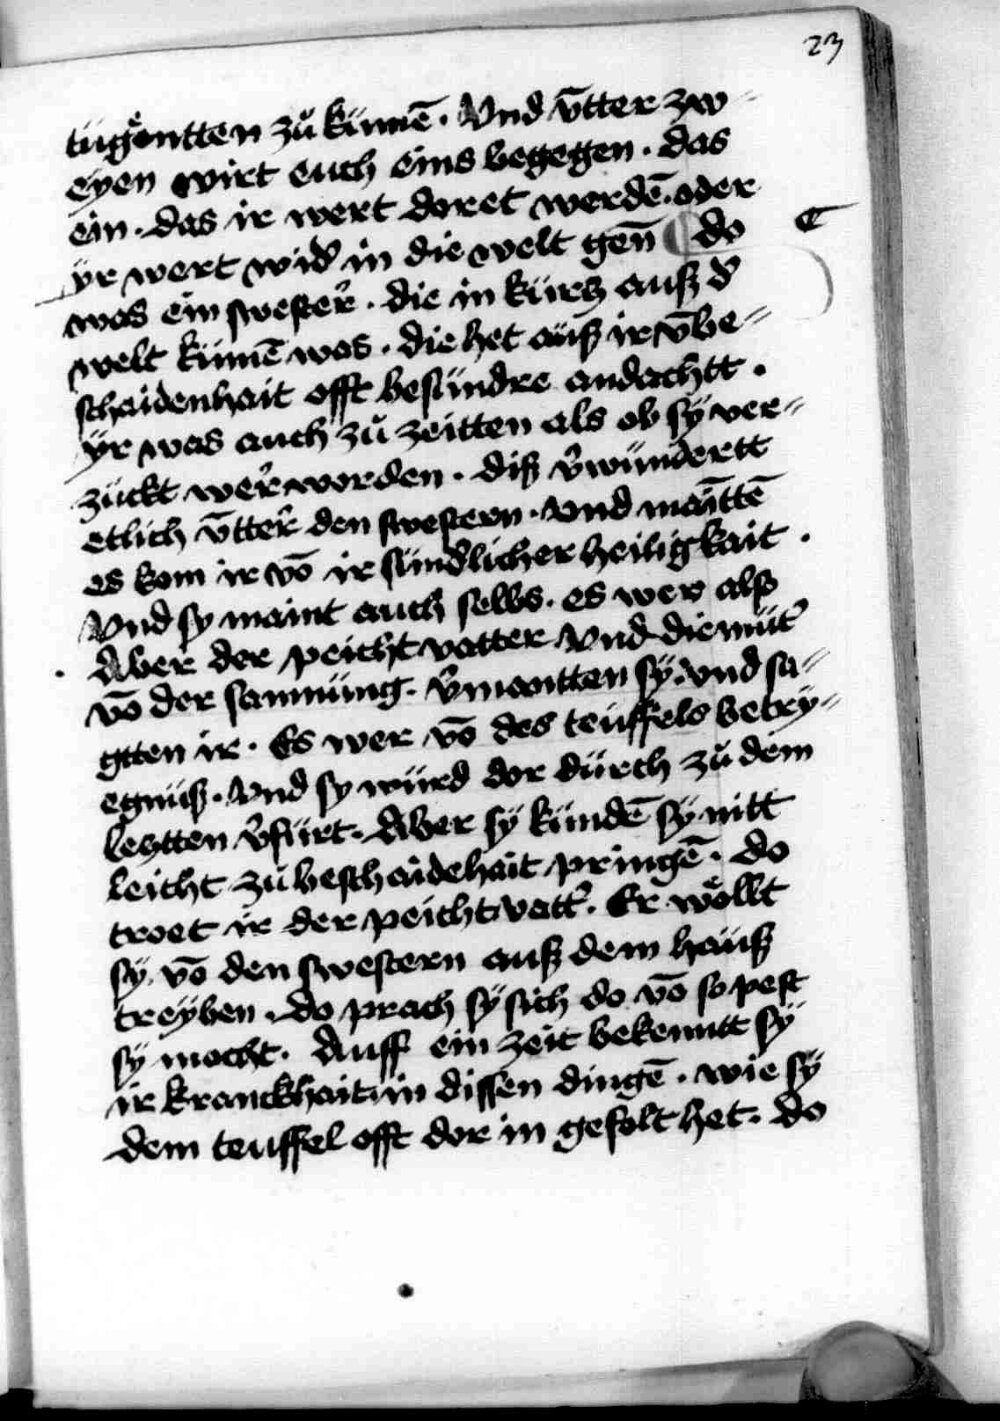 23
tügo̊ntten zů kümē. Vnd v̄tter zw=
eyen wirt euch eins begegen. das
ein. das ir wert doret werdē. oder
ÿr wert wid' in die welt gen̄ do
was ein swester̕. die in kürtz auß d'
welt kümē was. die het auß ir v̄be=
schaidenhait offt besündre andachtt.
ÿr was auch zů zeitten als ob sÿ ver=
zuckt wer̕ worden. diß v'wündertt
etlich v̄tter̕ den swestern. vnd maÿ̄ttē
es kom ir vō ir sündlicher heiligkait.
Vnd sy maint auch selbs. es wer also
Aber der peicht vatter vnd die müt'
vō der samnüng. v'montten sÿ. vnd sa=
gtten ir. Es wer vō des teüffels betry=
egnüß. Vnd sy würd dor dürch zů dem
letztten v'fürt. Aber sÿ kündē sÿ nitt
leicht zů beschaidehait pringē. do
troet ir der peicht vatt'. Er wo̊llt
sÿ. vō den swestern auß dem hauß
treÿben. do prach sÿ sich do vō so pest
sÿ mocht. Auff ein zeit bekenntt sÿ
ir kranckhait in dissen dingē. wie sÿ
dem teuffel offt dor in gefolt het. do